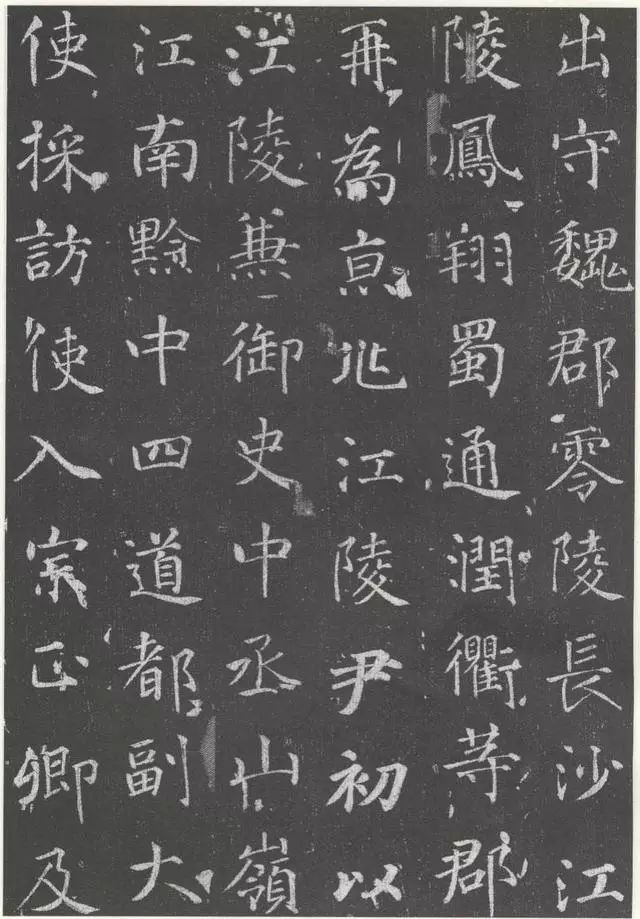 出守魏郡零陵長沙江
陵鳳翔蜀通潤衢等郡
再為京兆江陵尹初以
江陵兼御史中丞山嶺
江南黔中四道都副大
使採訪使入宗正卿及